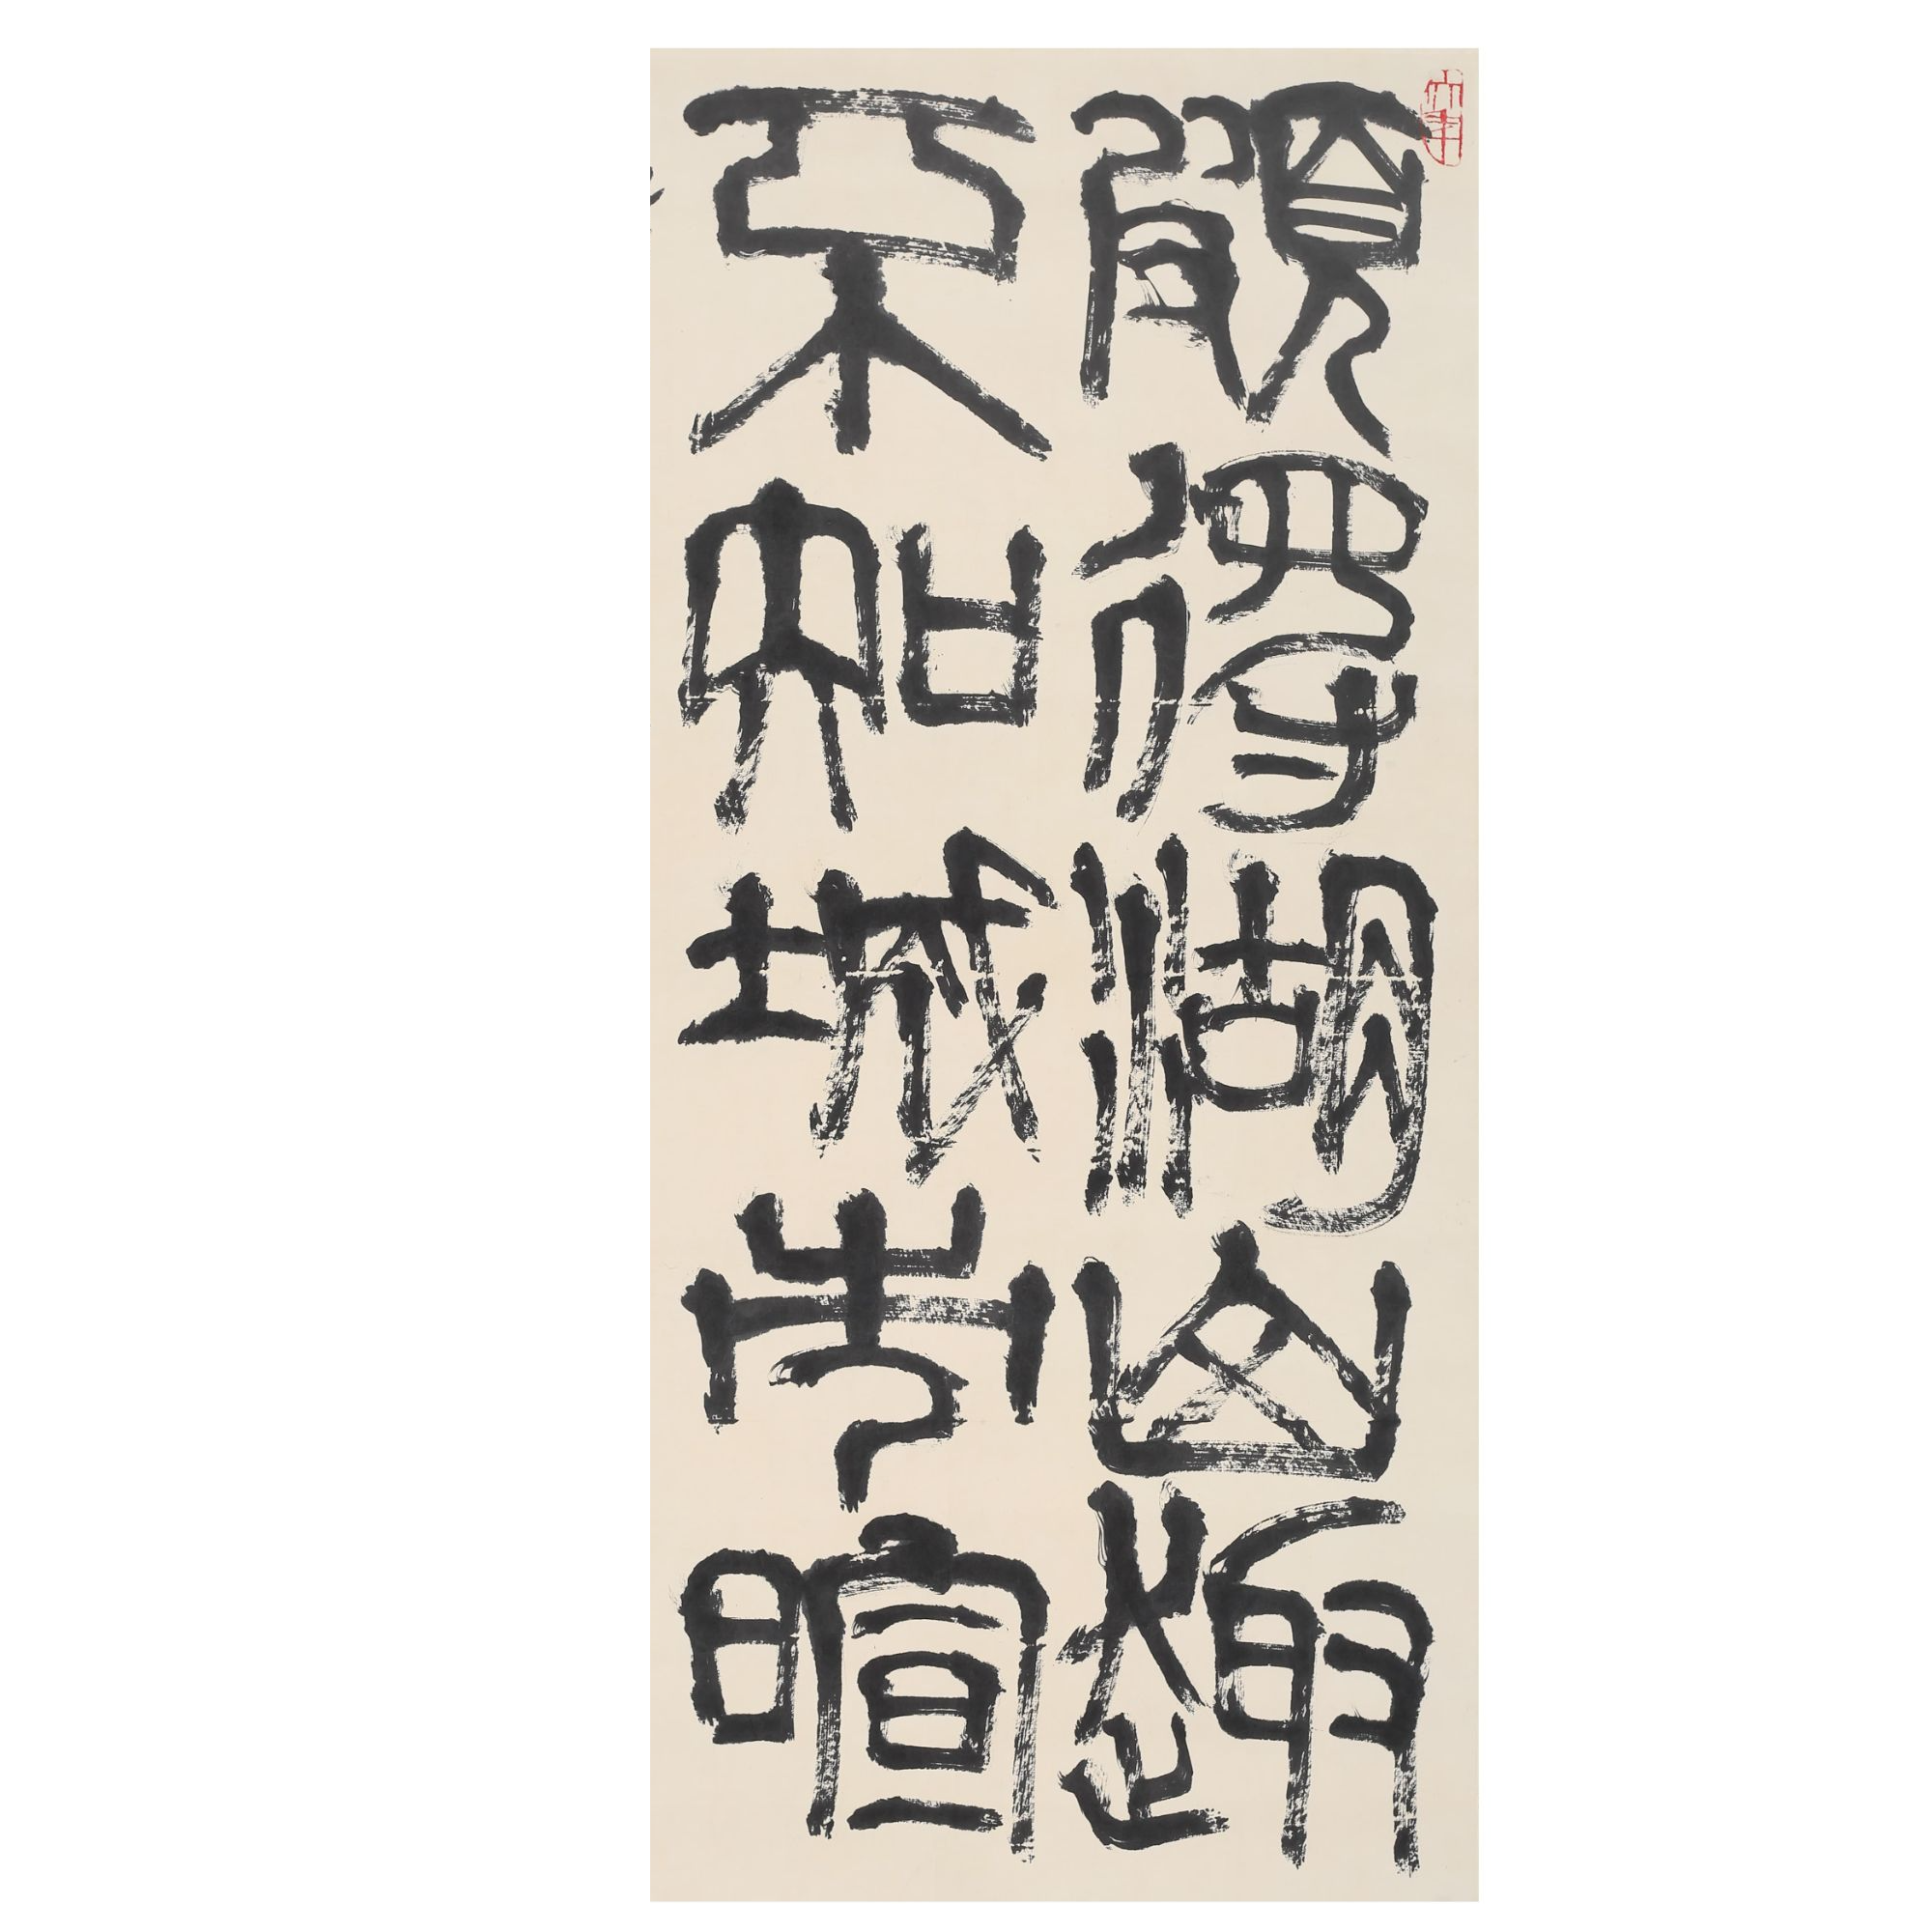 頗得湖山趣
不知城市喧